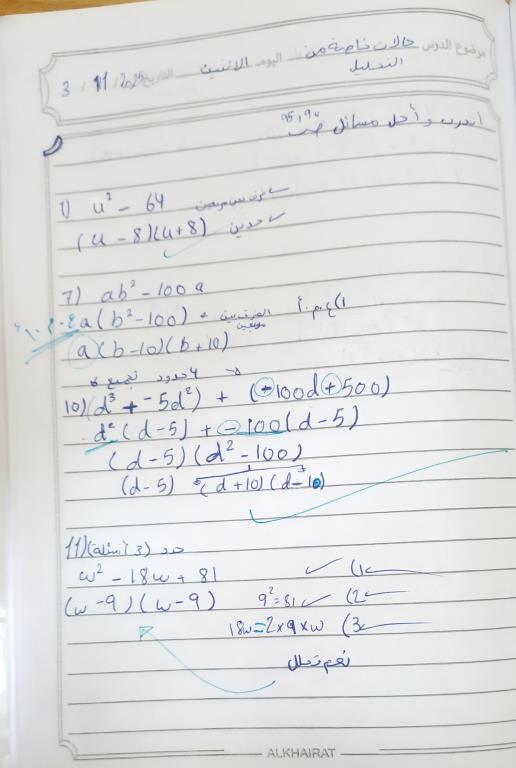 موضوع الدرس حالات خاصة من التحليل اليوم الاثنين التاريخ 3 / 11 / 2025
أتدرب وأحل مسائل ص 94 , 95
1) u² - 64 فرق بين مربعين
(u - 8)(u + 8) حدين
7) ab² - 100a
a(b² - 100) الفرق بين مربعين ع.م.أ
a(b - 10)(b + 10)
4 حدود تجميع
10) (d³ + -5d²) + (-100d + 500)
d²(d - 5) + -100(d - 5)
(d - 5)(d² - 100)
(d - 5) (d + 10)(d - 10)
11) (3 أسئلة) حدد
w² - 18w + 81 (1
(w - 9)(w - 9) 9² = 81 (2
18w = 2 × 9 × w (3
نعم تحلل
ALKHAIRAT